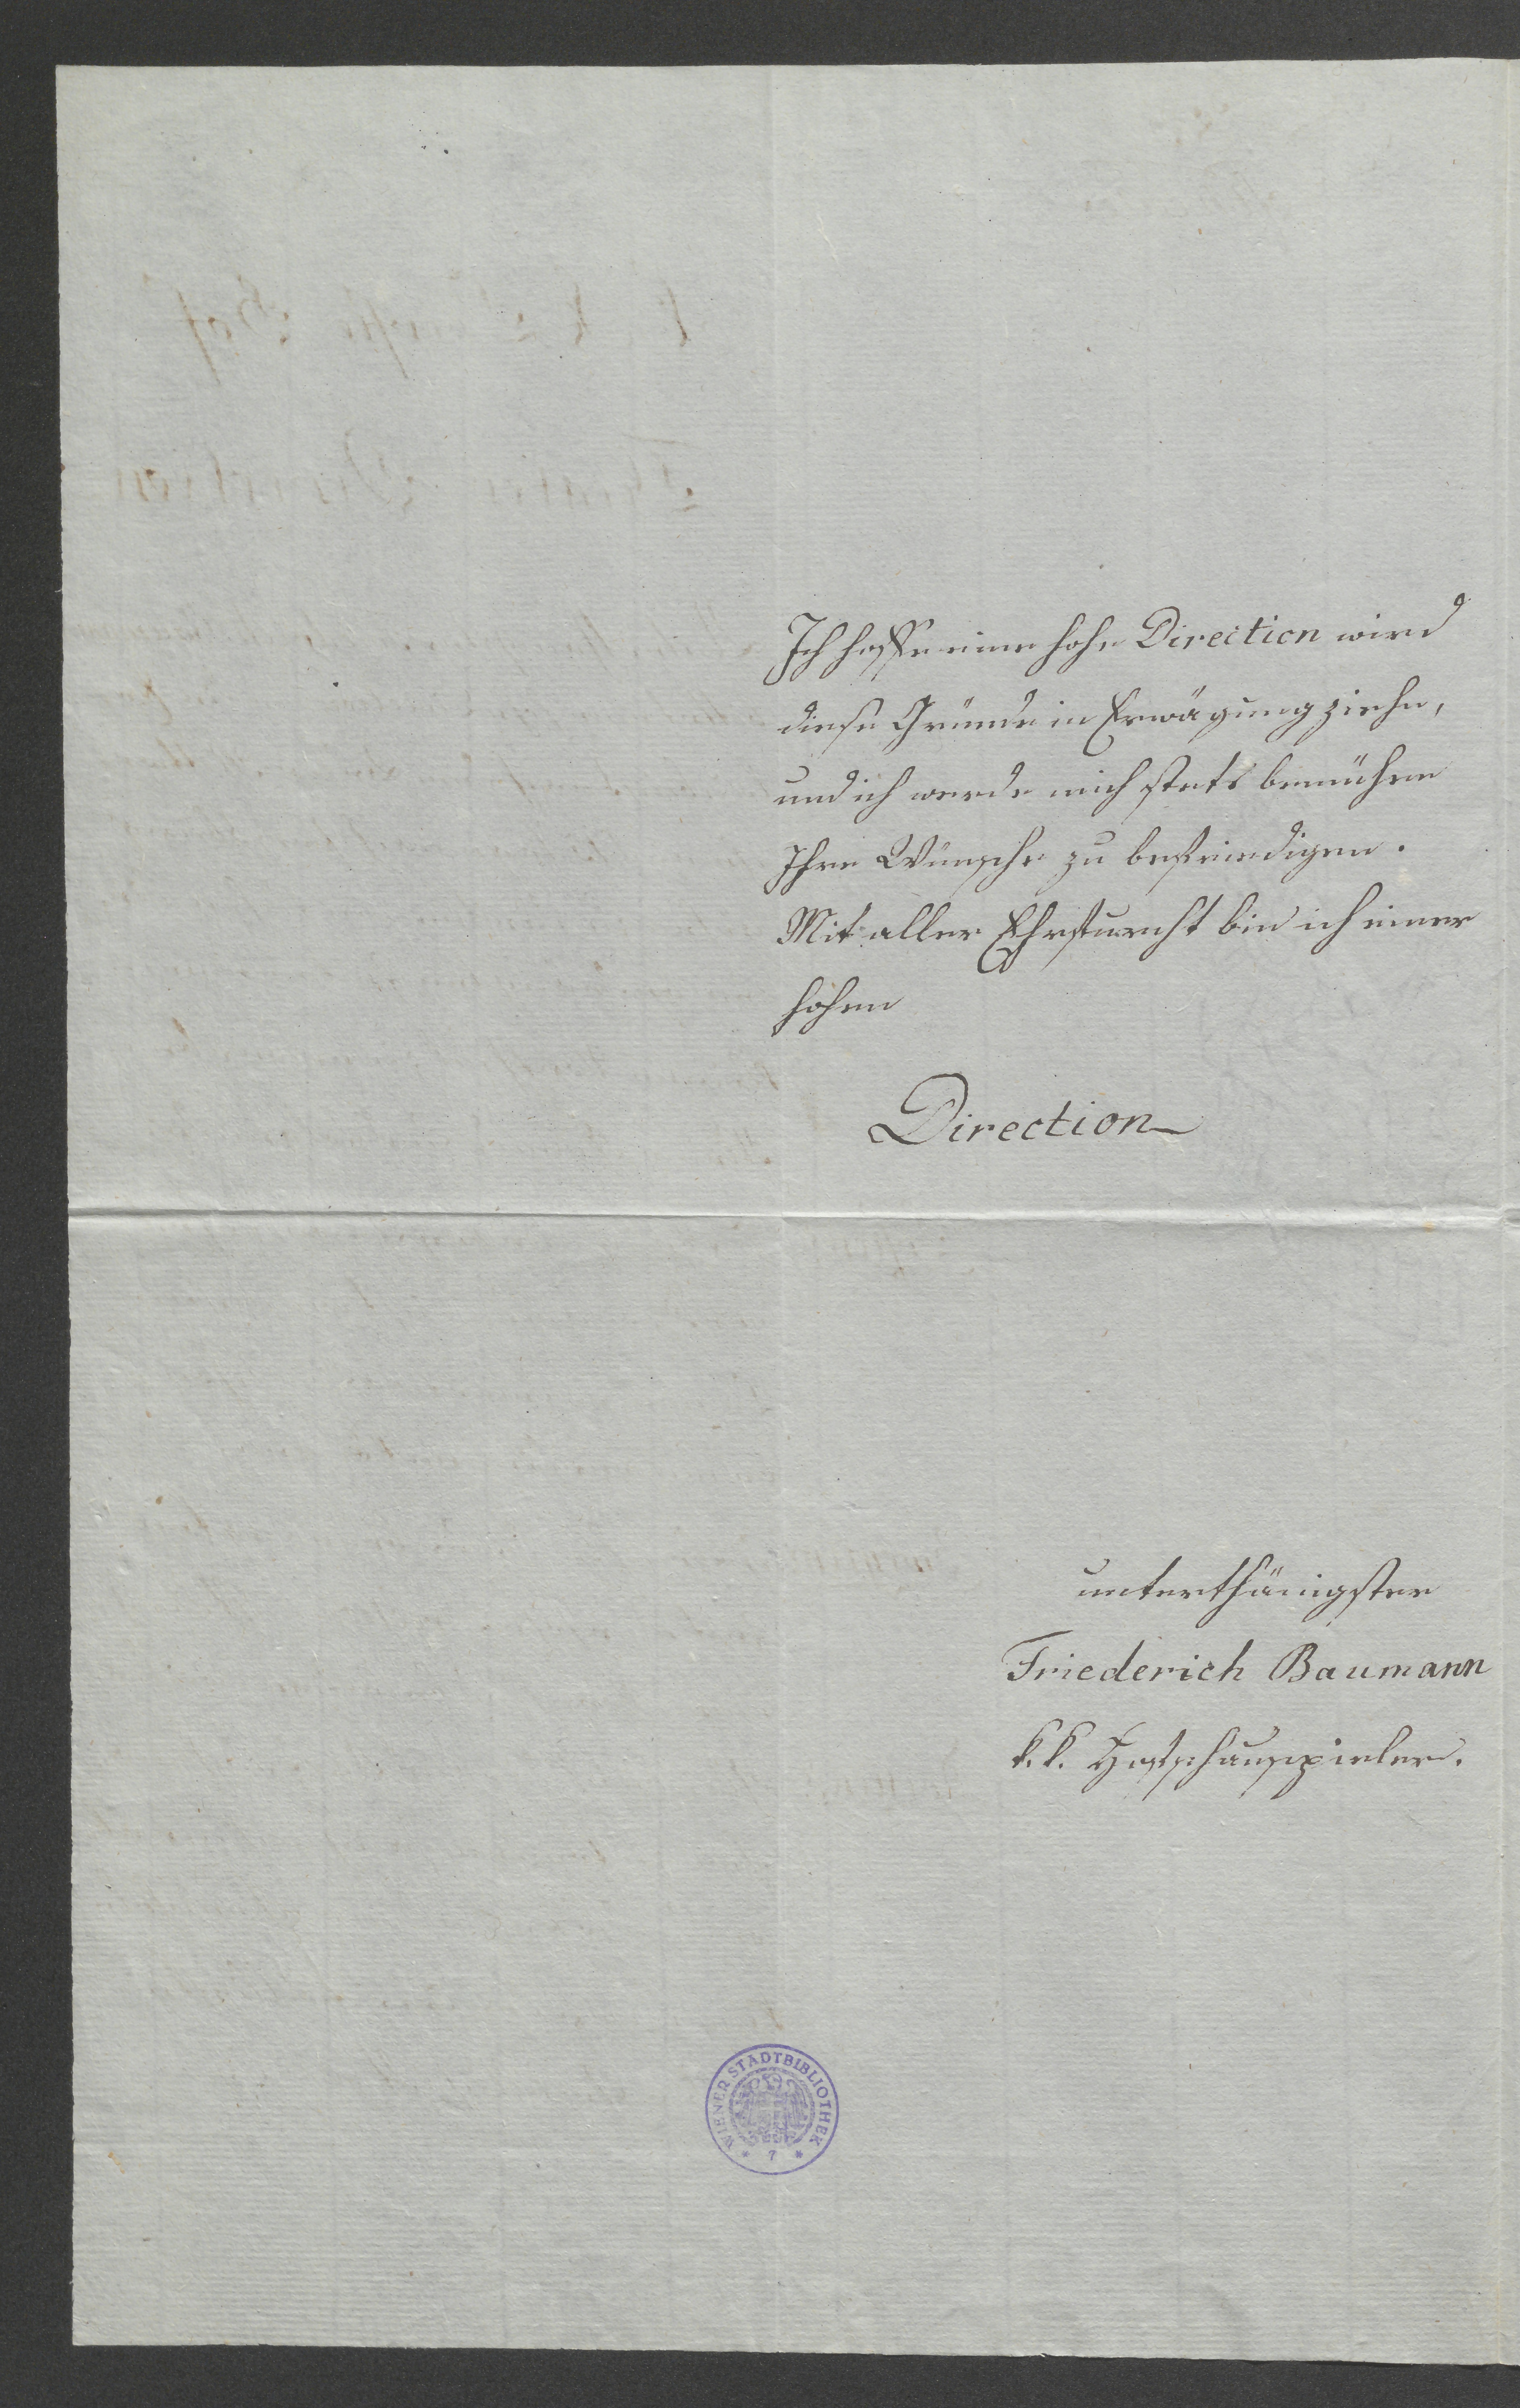 Ich hoffe eine hohe Direction wird
diese Gründe in Erwägung ziehn,
und ich werde mich stets bemühen
Ihre Wünsche zu befriedigen.
Mit aller Ehrfurcht bin ich einer
hohen
Direction
unterthänigster
Friederich Baumann
k.k. Hofschauspieler.
WIENER STADTBIBLIOTHEK
* 7 *